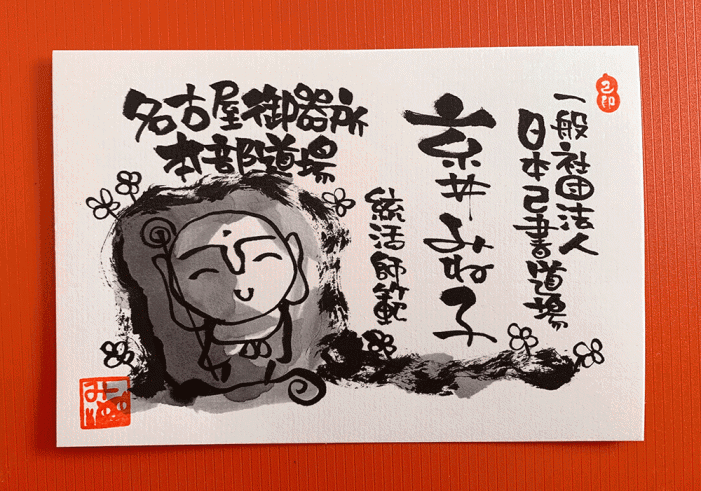 一般社団法人
日本己書道場
京井みね子
統活師範
名古屋御器所
本部道場
みね